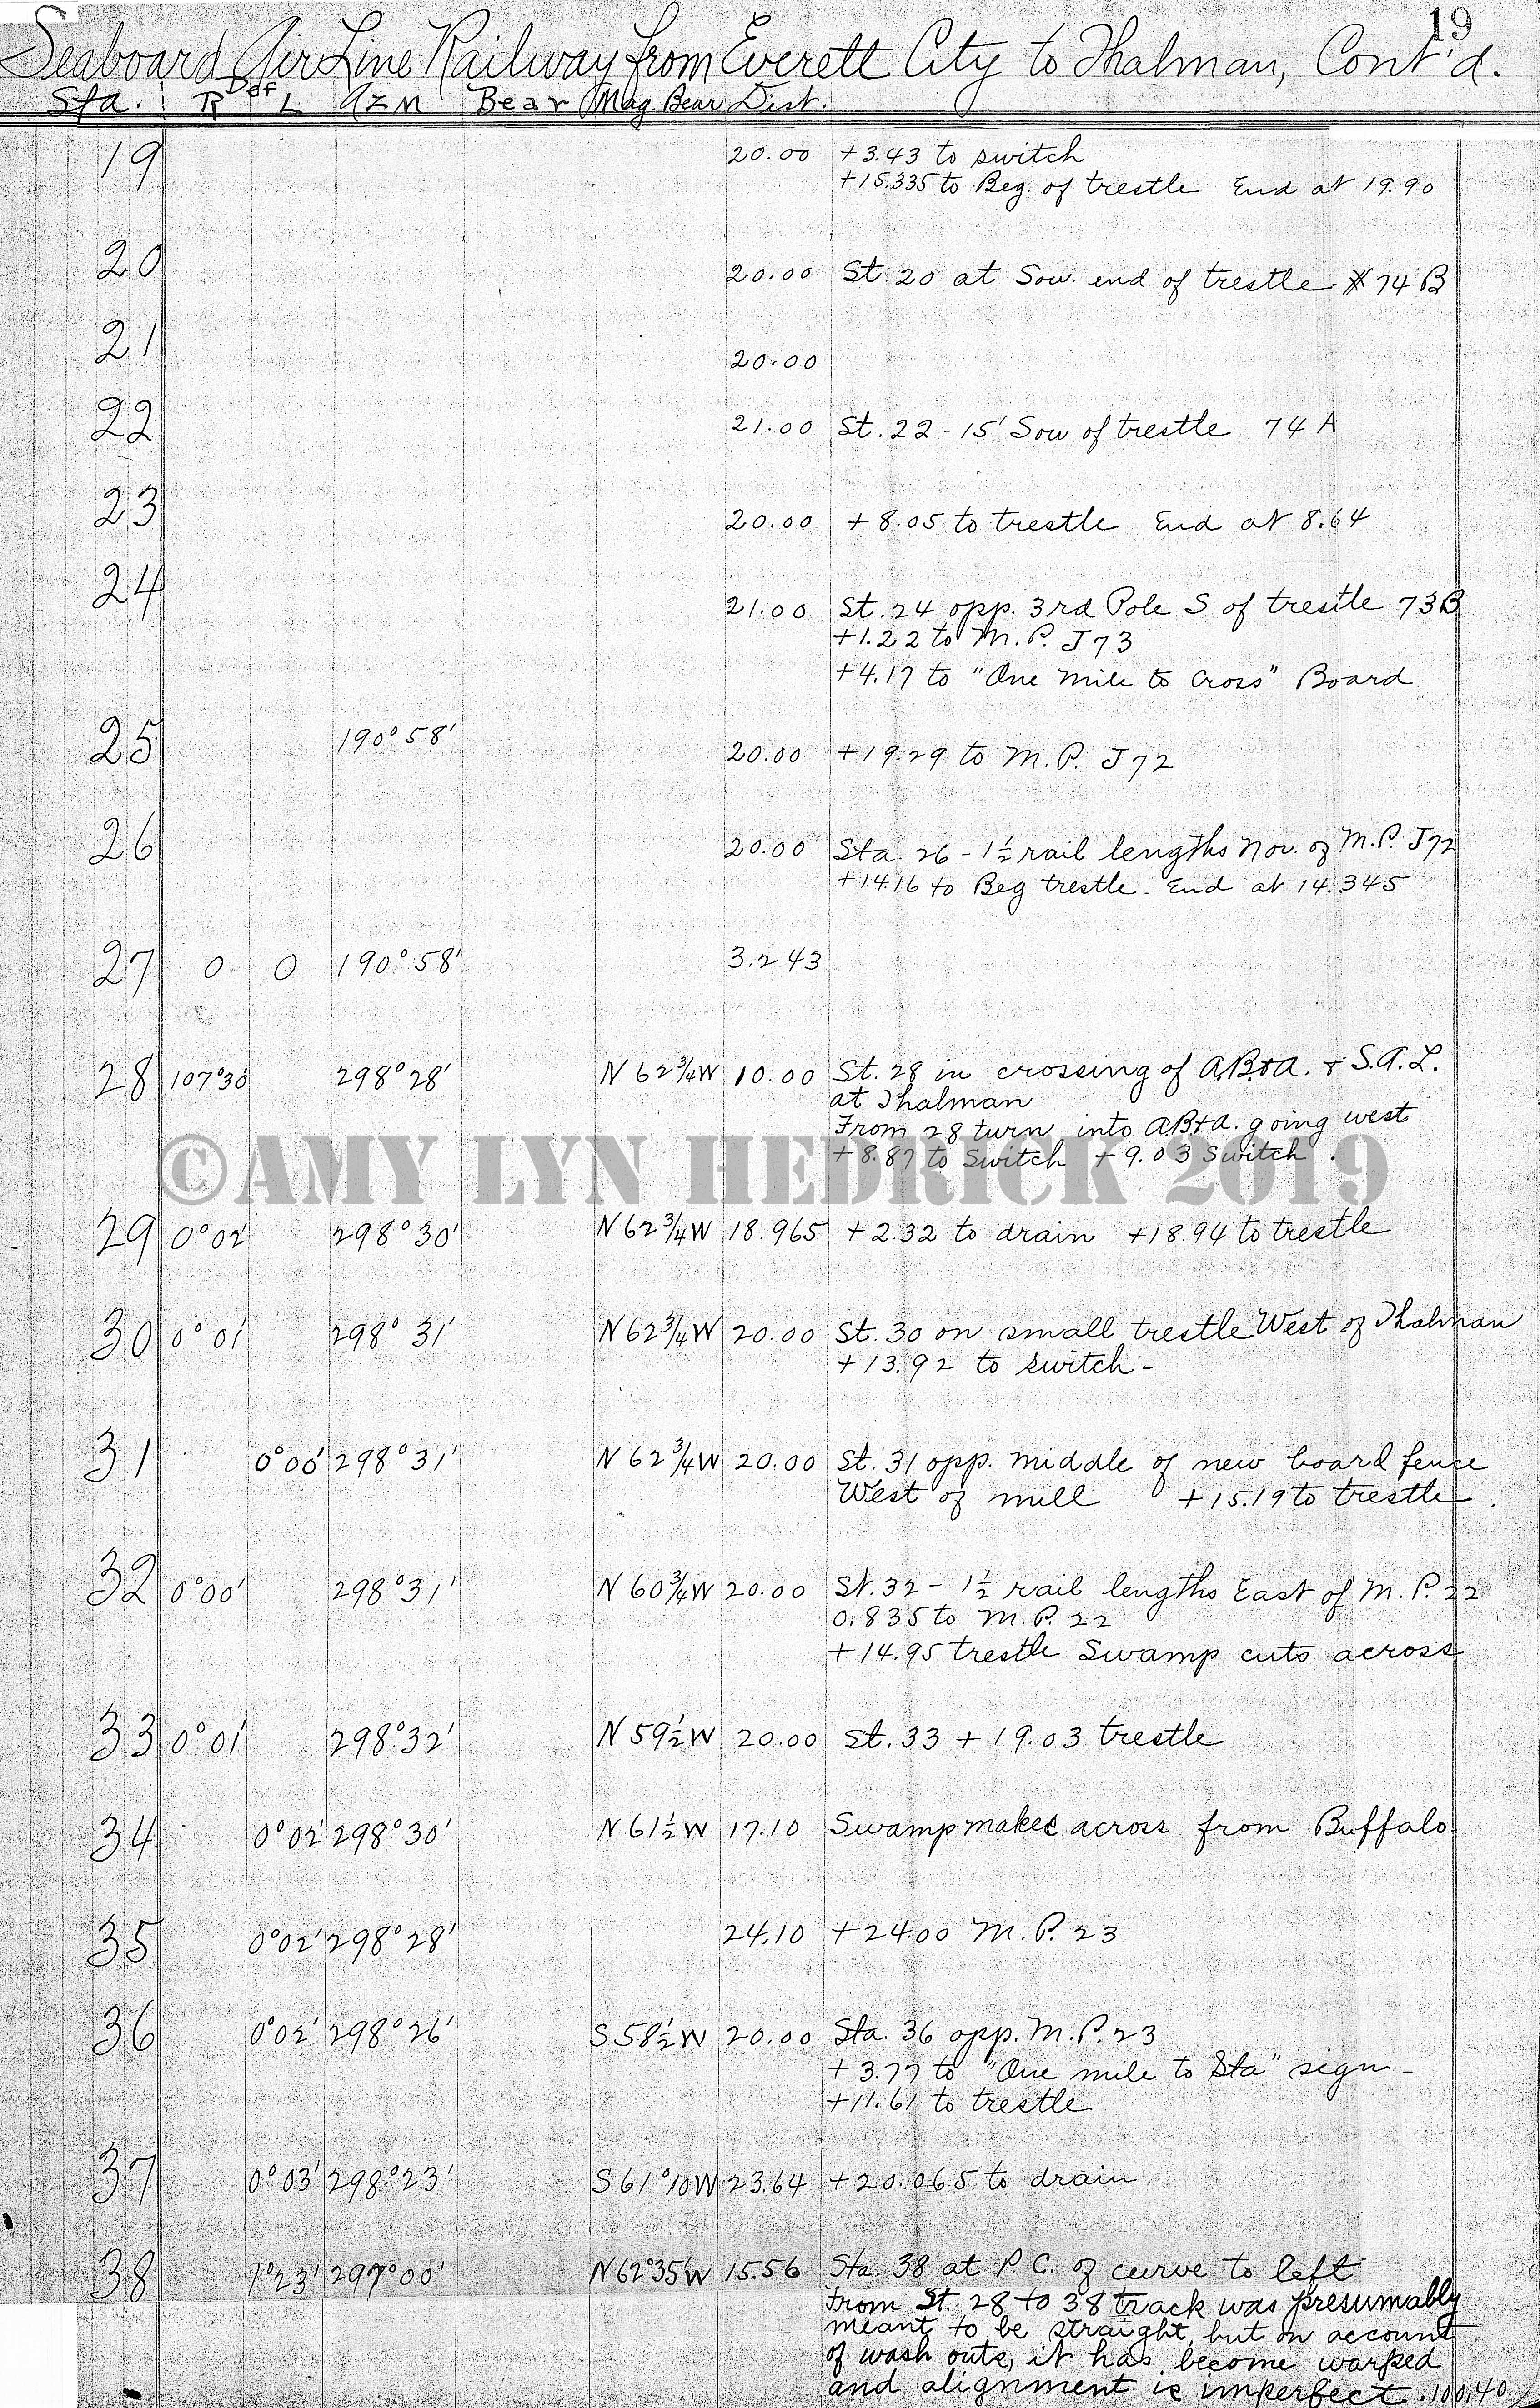 19
Seaboard Air Line Railway from Everett City to Thalman, Cont'd.
Sta. R Def L Azm Bear Mag. Bear Dist.
19 20.00 +3.43 to switch
+15.335 to Beg. of trestle End at 19.90
20 20.00 St. 20 at Sou. end of trestle 74 B
21 20.00
22 21.00 St. 22 - 15' Sou of trestle 74 A
23 20.00 +8.05 to trestle End at 8.64
24 21.00 St. 24 opp. 3rd Pole S of trestle 73B
+1.22 to M.P. J73
+4.17 to "One Mile to Cross" Board
25 190°58' 20.00 +19.29 to M.P. J72
26 20.00 Sta. 26 - 1½ rail lengths Nor. of M.P. J72
+14.16 to Beg trestle. End at 14.345
27 0 0 190°58' 3.243
28 107°30' 298°28' N 62¾ W 10.00 St. 28 in crossing of A.B.&A. & S.A.L.
at Thalman
From 28 turn into A.B&A. going west
+8.87 to Switch +9.03 Switch.
©AMY LYN HEDRICK 2019
29 0°02' 298°30' N 62¾ W 18.965 +2.32 to drain +18.94 to trestle
30 0°01' 298°31' N 62¾ W 20.00 St. 30 on small trestle West of Thalman
+13.92 to switch -
31 0°00' 298°31' N 62¾ W 20.00 St. 31 opp. middle of new board fence
West of mill +15.19 to trestle.
32 0°00' 298°31' N 60¾ W 20.00 St. 32 - 1½ rail lengths East of M.P. 22
0.835 to M.P. 22
+14.95 trestle Swamp cuts across
33 0°01' 298°32' N 59½ W 20.00 St. 33 + 19.03 trestle
34 0°02' 298°30' N 61½ W 17.10 Swamp makes across from Buffalo
35 0°02' 298°28' 24.10 +24.00 M.P. 23
36 0°02' 298°26' S 58½ W 20.00 Sta. 36 opp. M.P. 23
+3.77 to "One mile to Sta" sign -
+11.61 to trestle
37 0°03' 298°23' S 61°10 W 23.64 +20.065 to drain
38 1°23' 297°00' N 62°35' W 15.56 Sta. 38 at P.C. of curve to left
From St. 28 to 38 track was presumably
meant to be straight, but on account
of wash outs, it has become warped
and alignment is imperfect. 100,40